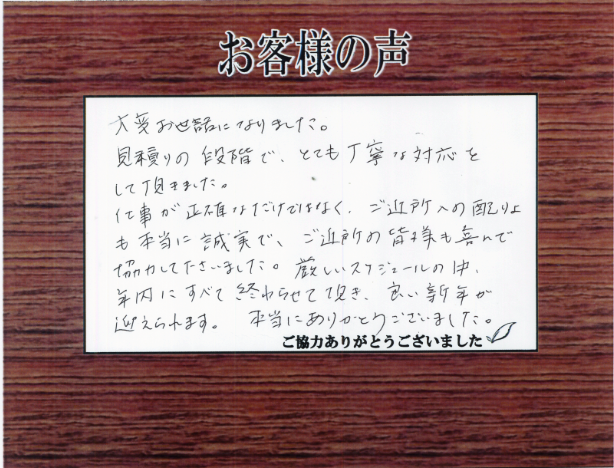 お客様の声
大変お世話になりました。
見積りの段階で、とても丁寧な対応を
して頂きました。
仕事が正確なだけではなく、ご近所への配りょ
も本当に誠実で、ご近所の皆様も喜んで
協力してくださいました。厳しいスケジュールの中、
年内にすべて終わらせて頂き、良い新年が
迎えられます。 本当にありがとうございました。
ご協力ありがとうございました